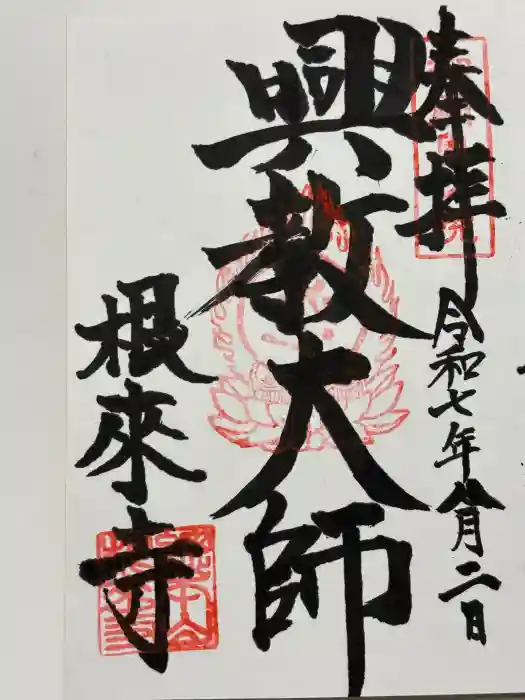 奉拝
令和七年八月二日
興教大師
根來寺